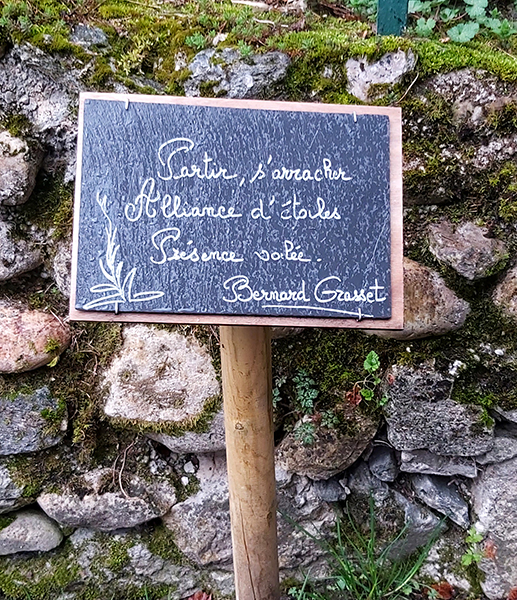 Partir, s'arracher
Alliance d'étoiles
Présence voilée.
Bernard Grasset